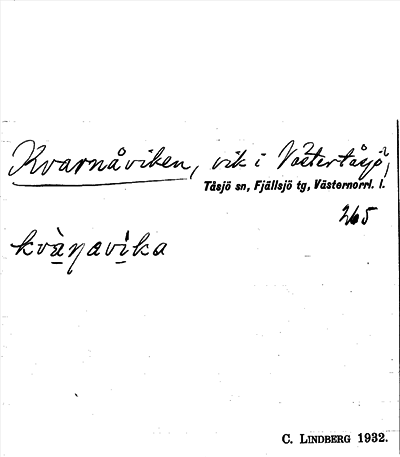 Kvarnåviken, vik i Västertåsjö,
Tåsjö sn, Fjällsjö tg, Västernorrl. l.
265
kvànavíka
C. LINDBERG 1932.